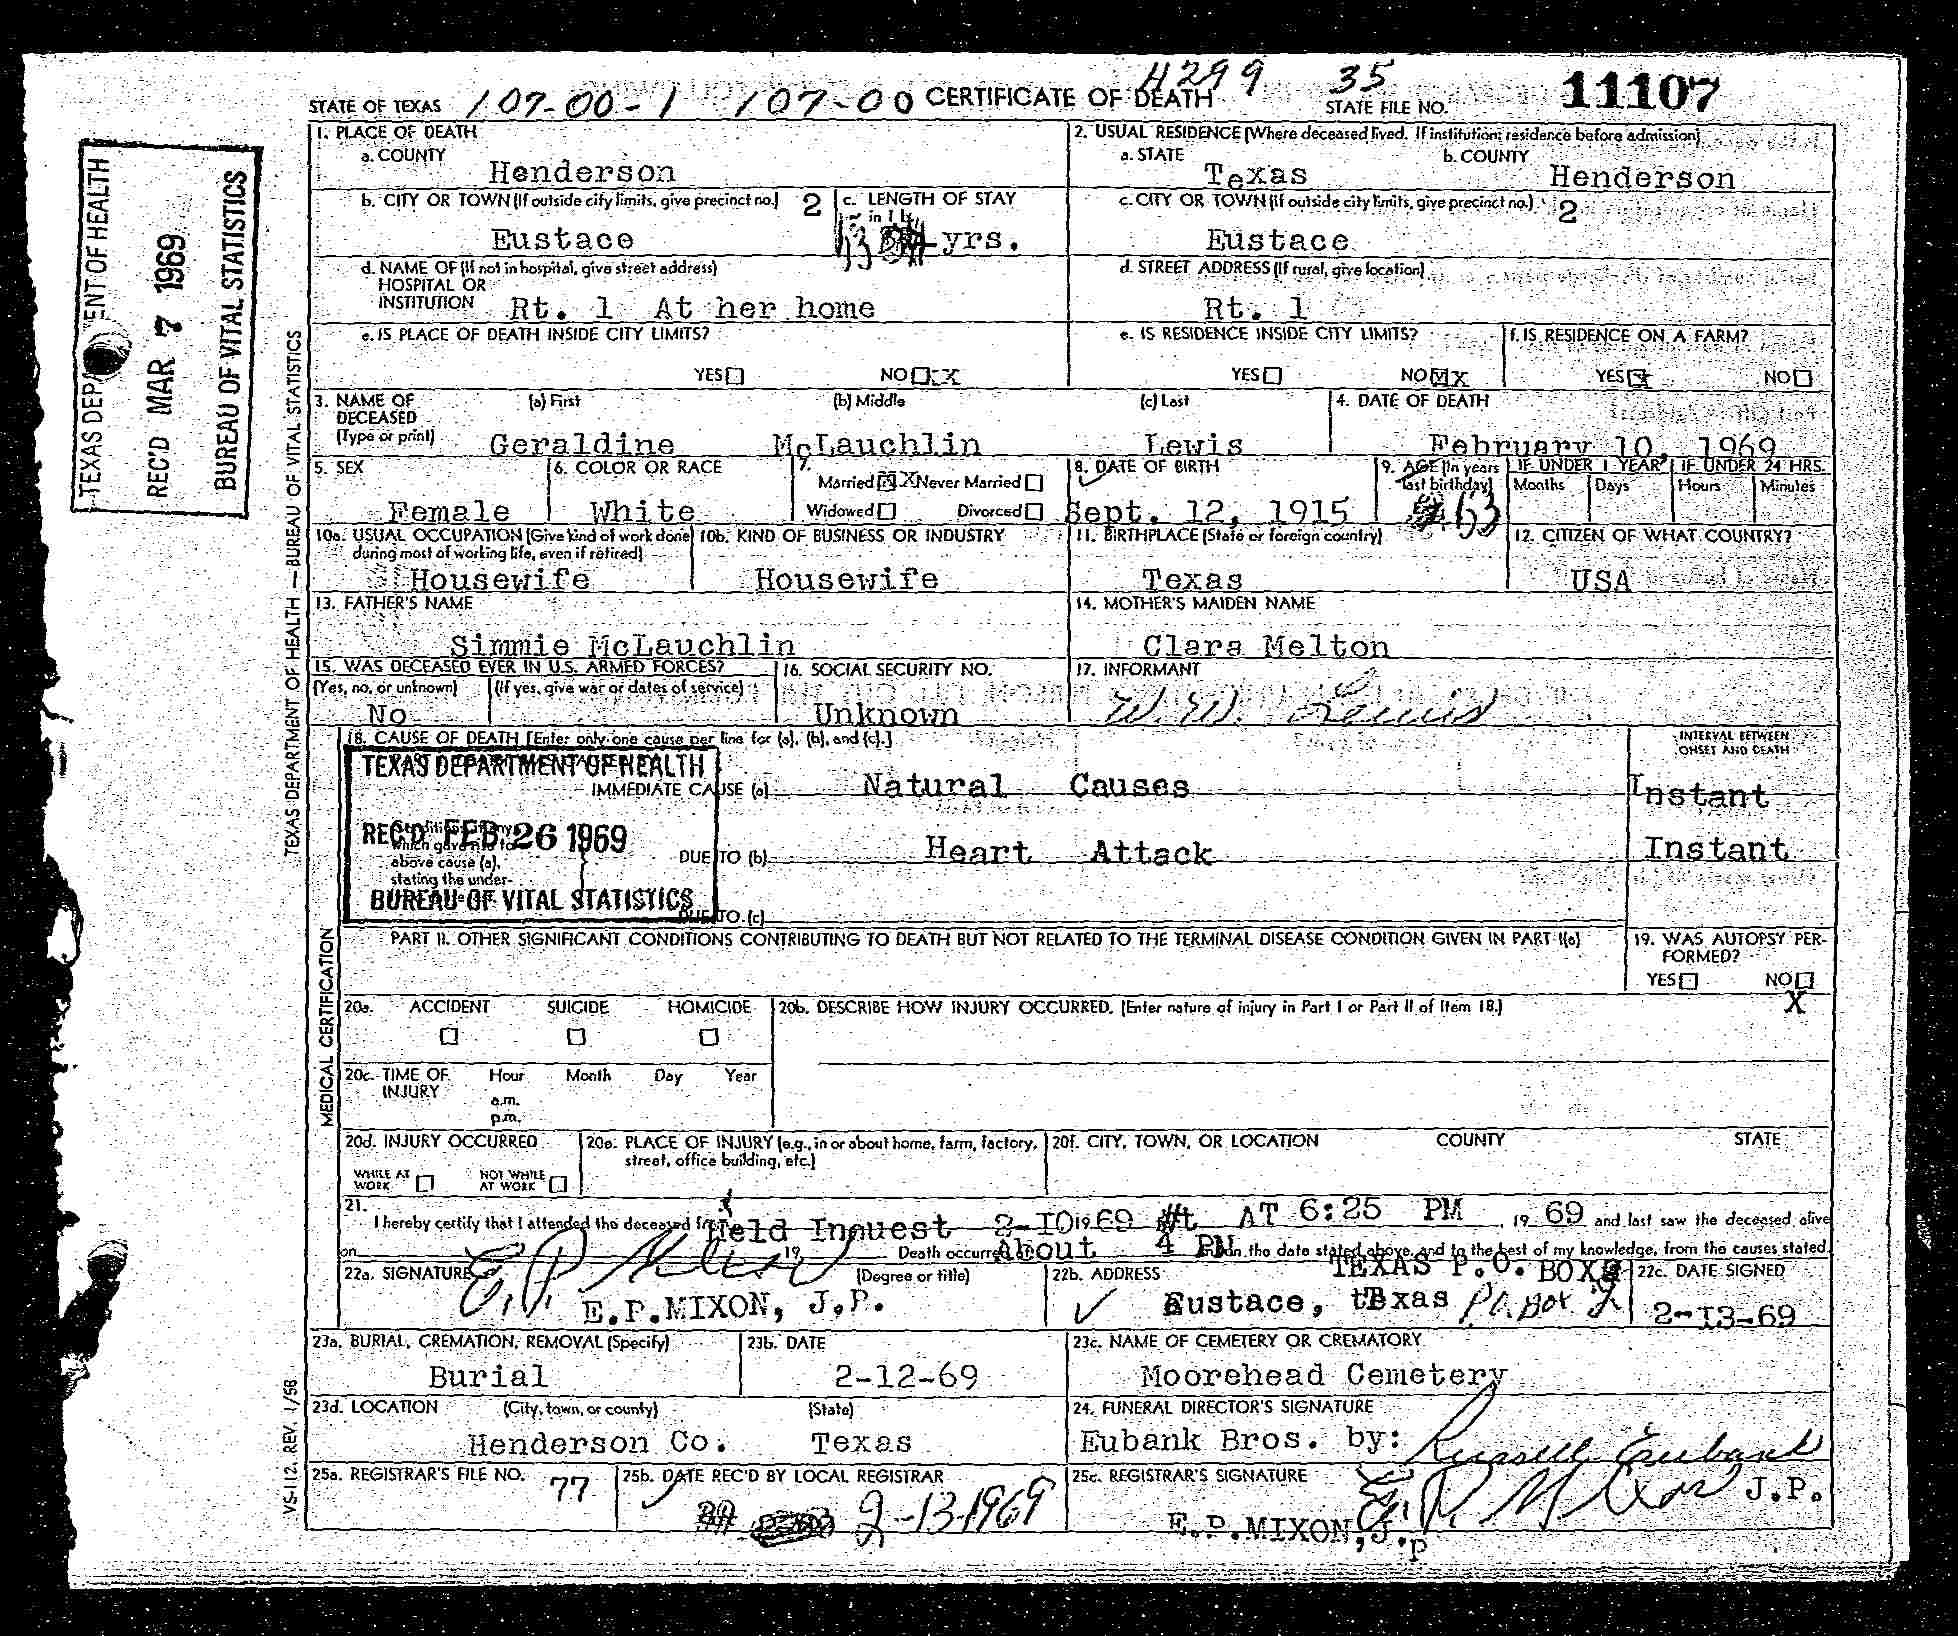 4299 35
STATE OF TEXAS 107-00-1 107-00 CERTIFICATE OF DEATH STATE FILE NO. 11107
TEXAS DEPARTMENT OF HEALTH
REC'D MAR 7 1969
BUREAU OF VITAL STATISTICS
TEXAS DEPARTMENT OF HEALTH — BUREAU OF VITAL STATISTICS
1. PLACE OF DEATH
a. COUNTY
Henderson
2. USUAL RESIDENCE (Where deceased lived. If institution: residence before admission)
a. STATE b. COUNTY
Texas Henderson
b. CITY OR TOWN (If outside city limits, give precinct no.) 2
Eustace
c. LENGTH OF STAY
in 1b
13 yrs.
c. CITY OR TOWN (If outside city limits, give precinct no.) 2
Eustace
d. NAME OF (If not in hospital, give street address)
HOSPITAL OR
INSTITUTION Rt. 1 At her home
d. STREET ADDRESS (If rural, give location)
Rt. 1
e. IS PLACE OF DEATH INSIDE CITY LIMITS?
YES NO X
e. IS RESIDENCE INSIDE CITY LIMITS?
YES NO X
f. IS RESIDENCE ON A FARM?
YES X NO
3. NAME OF (a) First (b) Middle (c) Last
DECEASED
(Type or print) Geraldine McLauchlin Lewis
4. DATE OF DEATH
February 10, 1969
5. SEX
Female
6. COLOR OR RACE
White
7.
Married X Never Married
Widowed Divorced
8. DATE OF BIRTH
Sept. 12, 1915
9. AGE (In years
last birthday)
53
IF UNDER 1 YEAR IF UNDER 24 HRS.
Months Days Hours Minutes
10a. USUAL OCCUPATION (Give kind of work done
during most of working life, even if retired)
Housewife
10b. KIND OF BUSINESS OR INDUSTRY
Housewife
11. BIRTHPLACE (State or foreign country)
Texas
12. CITIZEN OF WHAT COUNTRY?
USA
13. FATHER'S NAME
Simmie McLauchlin
14. MOTHER'S MAIDEN NAME
Clara Melton
15. WAS DECEASED EVER IN U.S. ARMED FORCES?
(Yes, no, or unknown) (If yes, give war or dates of service)
No
16. SOCIAL SECURITY NO.
Unknown
17. INFORMANT
W. W. Lewis
MEDICAL CERTIFICATION
18. CAUSE OF DEATH [Enter only one cause per line for (a), (b), and (c).]
INTERVAL BETWEEN
ONSET AND DEATH
TEXAS DEPARTMENT OF HEALTH
REC'D FEB 26 1969
BUREAU OF VITAL STATISTICS
IMMEDIATE CAUSE (a) Natural Causes Instant
Conditions, if any,
which gave rise to
above cause (a),
stating the under-
DUE TO (b) Heart Attack Instant
DUE TO (c)
PART II. OTHER SIGNIFICANT CONDITIONS CONTRIBUTING TO DEATH BUT NOT RELATED TO THE TERMINAL DISEASE CONDITION GIVEN IN PART I(a)
19. WAS AUTOPSY PER-
FORMED?
YES NO
X
20a. ACCIDENT SUICIDE HOMICIDE
20b. DESCRIBE HOW INJURY OCCURRED. (Enter nature of injury in Part I or Part II of Item 18.)
20c. TIME OF Hour Month Day Year
INJURY
a.m.
p.m.
20d. INJURY OCCURRED
WHILE AT NOT WHILE
WORK AT WORK
20e. PLACE OF INJURY (e.g., in or about home, farm, factory,
street, office building, etc.)
20f. CITY, TOWN, OR LOCATION COUNTY STATE
21.
I hereby certify that I attended the deceased Held Inquest 2-10 1969 AT 6:25 PM, 19 69 and last saw the deceased alive
on 19 Death occurred About 4 PM on the date stated above, and to the best of my knowledge, from the causes stated.
22a. SIGNATURE (Degree or title)
E. P. Mixon
E.P.MIXON, J.P.
22b. ADDRESS
TEXAS P.O. BOX
Eustace, tExas P.O. Box 2
22c. DATE SIGNED
2-I3-69
23a. BURIAL, CREMATION, REMOVAL (Specify)
Burial
23b. DATE
2-12-69
23c. NAME OF CEMETERY OR CREMATORY
Moorehead Cemetery
23d. LOCATION (City, town, or county) (State)
Henderson Co. Texas
24. FUNERAL DIRECTOR'S SIGNATURE
Eubank Bros. by: Russell Eubank
25a. REGISTRAR'S FILE NO. 77
25b. DATE REC'D BY LOCAL REGISTRAR
2-13-1969
25c. REGISTRAR'S SIGNATURE
E. P. Mixon J.P.
E.P.MIXON,J.P
VS-112. REV. 1/58